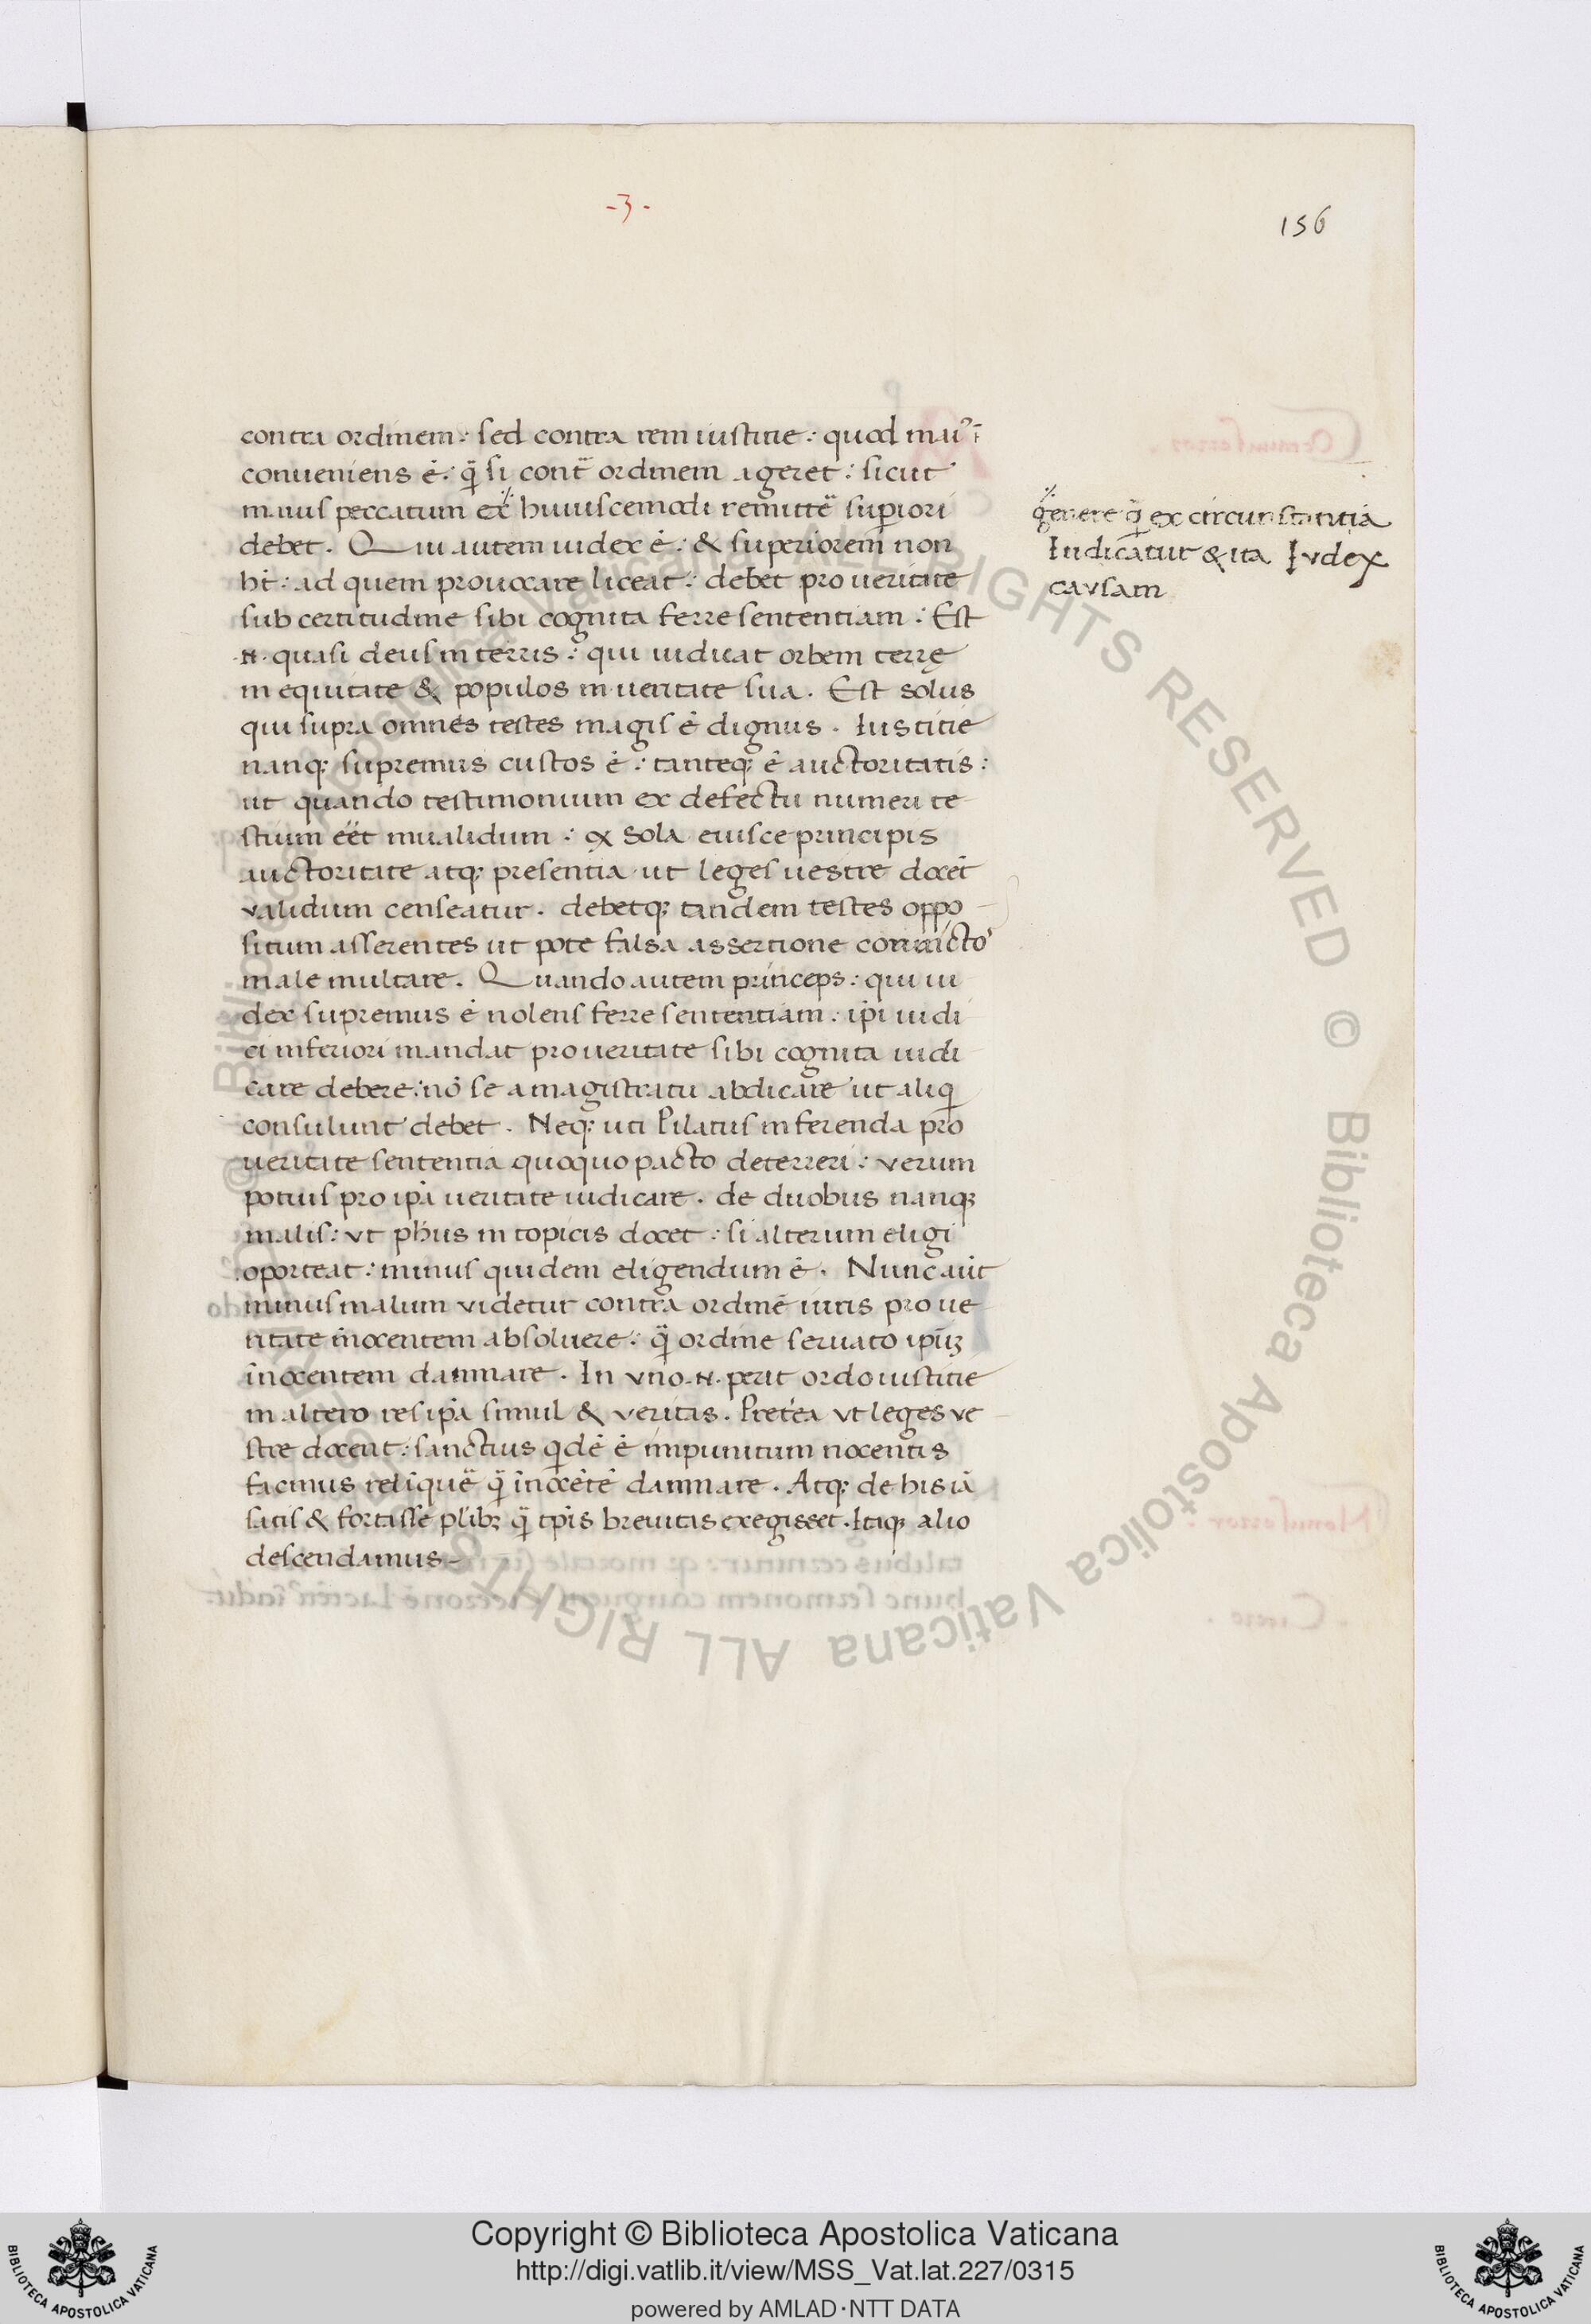 -3-
156
contra ordinem: sed contra rem iustitie: quod
conueniens ē: q̄ si cont̄ ordinem ageret: sicut
maius peccatum ex huiuscemodi remittē superiori
debet. Qui autem iudex ē: & superiorem non
ht̄: ad quem prouocare liceat: debet pro ueritate
sub certitudine sibi cognita ferre sententiam: Est
.n. quasi deus in terris: qui iudicat orbem terrę
in equitate & populos in ueritate sua. Est solus
qui supra omnes testes magis ē dignus. Iustitie
nanq; supremus custos ē: tanteq; ē auctoritatis:
ut quando testimonium ex defectu numeri te
stium eēt inualidum: ex sola eiusce principis
auctoritate atq; presentia ut leges uestre docēt
validum censeatur. debetq; tandem testes oppo
situm asserentes ut pote falsa assertione conuicto
male multare. Quando autem princeps: qui iu
dex supremus ē nolens ferre sententiam: ip̄i iudi
ci inferiori mandat pro ueritate sibi cognita iudi
care debere: nō se a magistratu abdicare ut aliq
consulunt debet. Neq; uti Pilatus in ferenda pro
ueritate sententia quoquo pacto deterreri: verum
potius pro ip̄a ueritate iudicare. de duobus nanq;
malis: vt ph̄us in topicis docet: si alterum eligi
oporteat: minus quidem eligendum ē. Nunc aūt
minus malum videtur contra ordinē iuris pro ue
ritate īnocentem absoluere: q̄ ordine seruato ip̄uȝ
īnocentem damnare. In vno .n. perit ordo iustitie
in altero res ip̄a simul & veritas. Pretēa vt leges ve
stre docent: sanctius qidē ē impunitum nocentis
facinus reliquē q̄ īnocētē damnare. Atq; de his iā
satis & fortasse pl̄ibȝ q̄ tp̄is breuitas exegisset. Itaq; alio
descendamus
genere q̄ ex circunstantia
Iudicatur & ita Iudex
causam
Copyright © Biblioteca Apostolica Vaticana
http://digi.vatlib.it/view/MSS_Vat.lat.227/0315
powered by AMLAD·NTT DATA
BIBLIOTECA APOSTOLICA VATICANA
BIBLIOTECA APOSTOLICA VATICANA